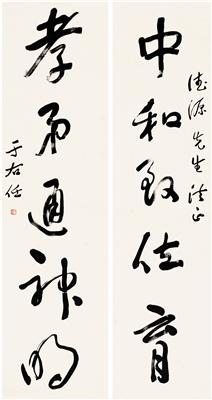 德源先生法正
中和致位育
孝弟通神明
于右任